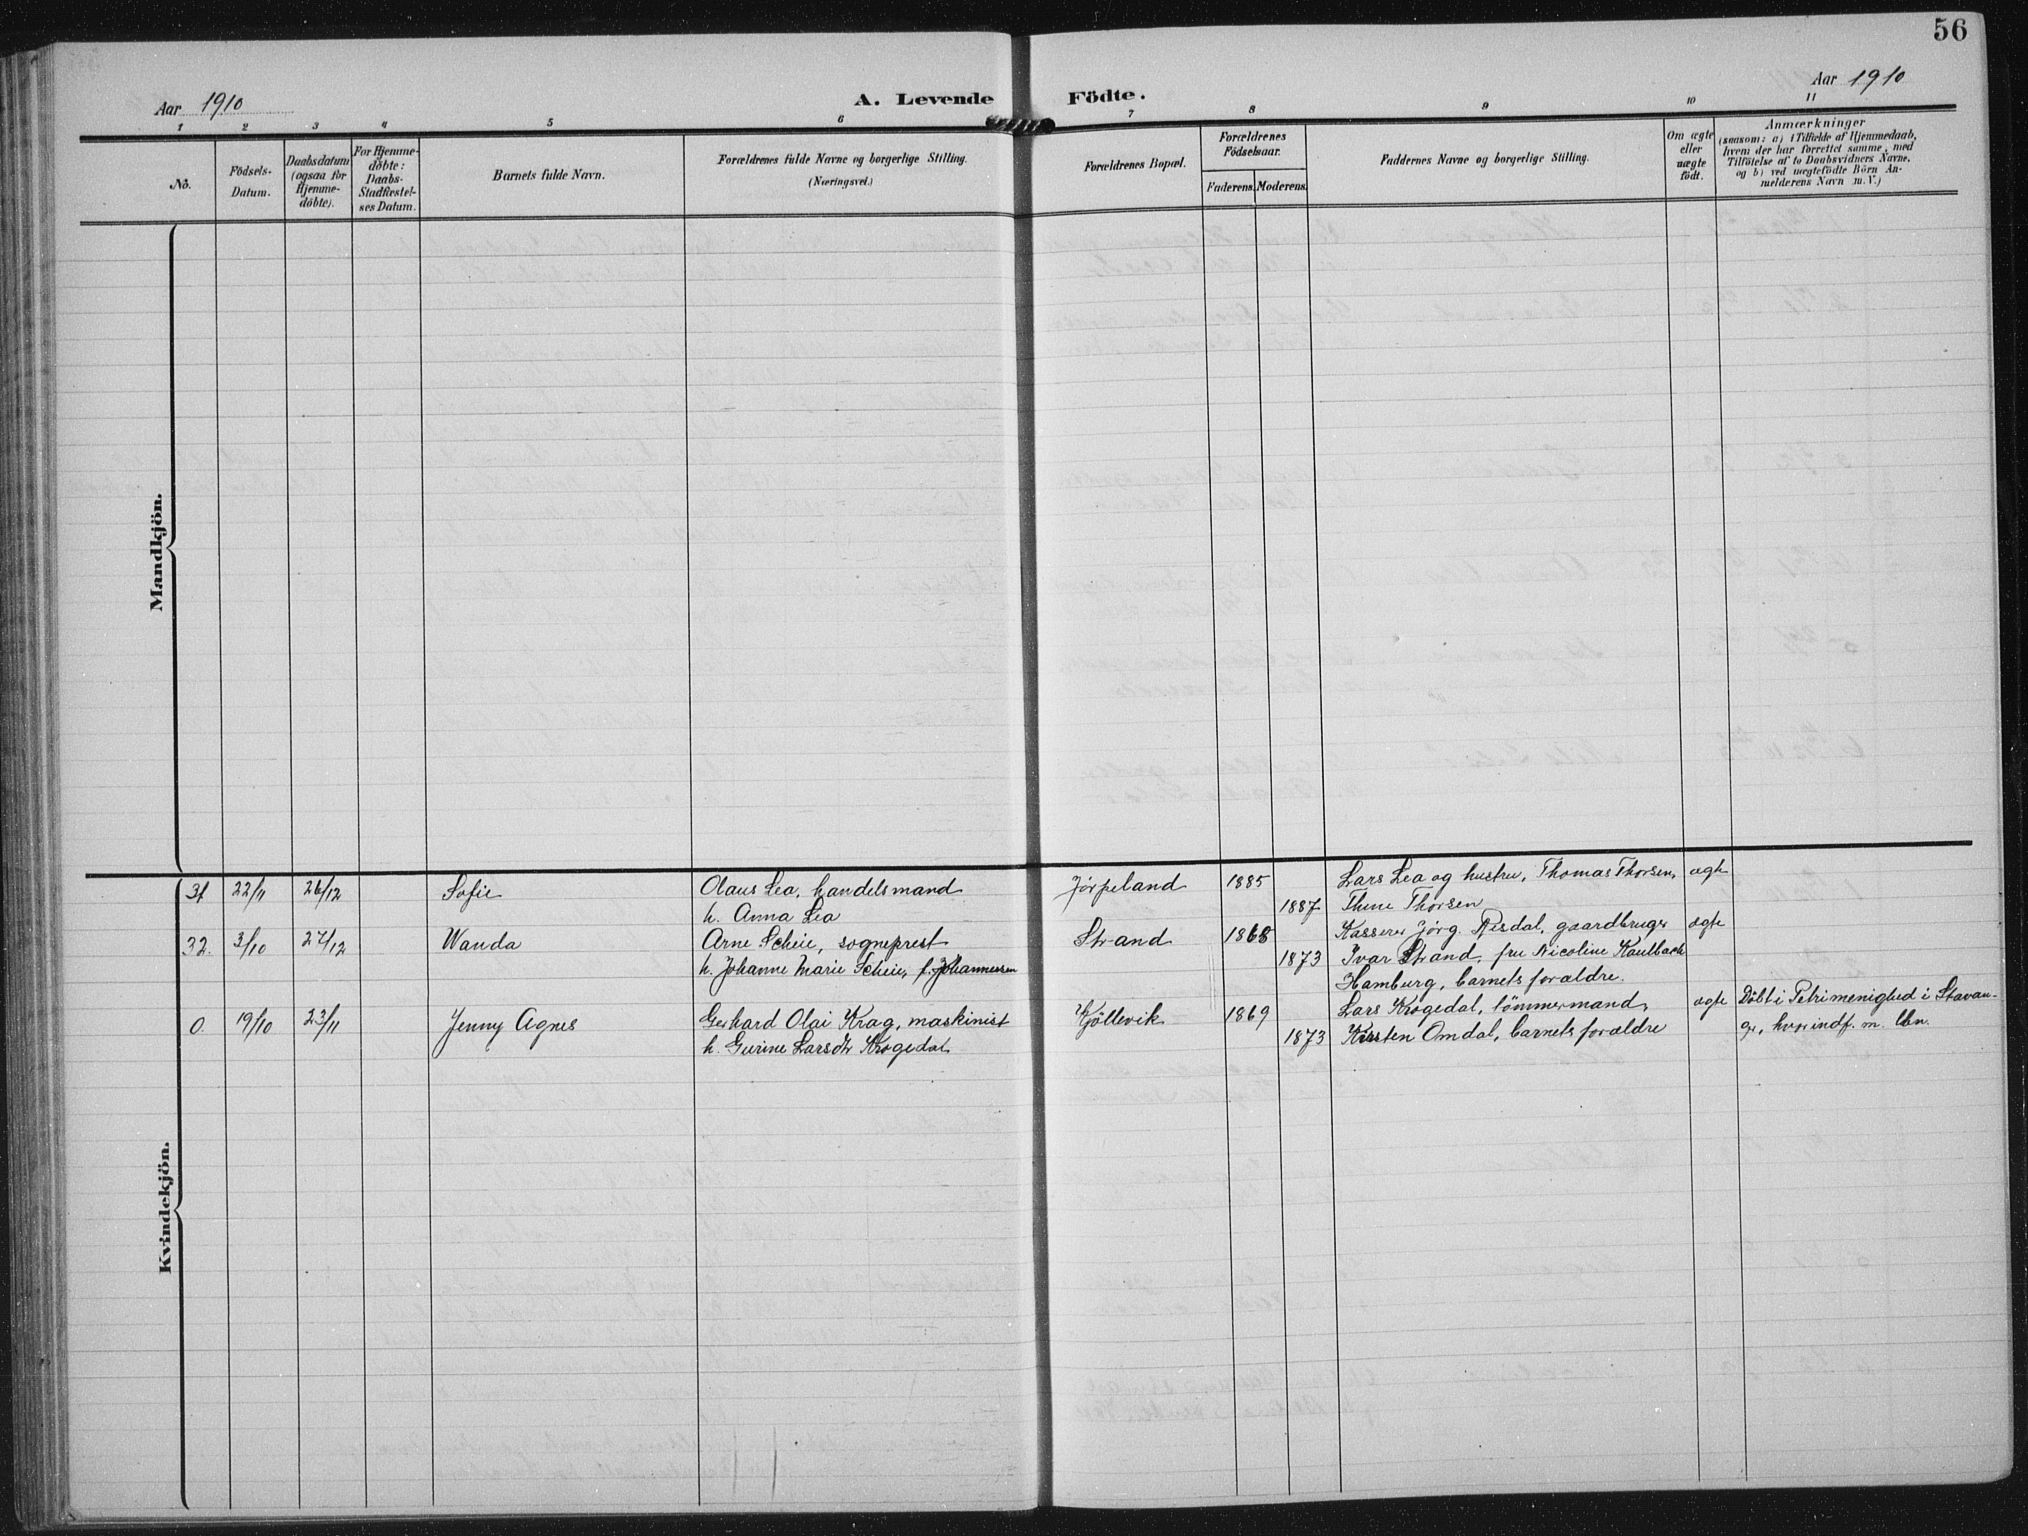 56
Aar 1910
A. Levende Födte.
Aar 1910
1 2 3 4 5 6 7 8 9 10 11
No.
Födsels-
Datum.
Daabsdatum
(ogsaa for
Hjemme-
döbte).
For Hjemme-
döbte:
Daabs-
Stadfæstel-
ses Datum.
Barnets fulde Navn.
Forældrenes fulde Navne og borgerlige Stilling.
(Næringsvei.)
Forældrenes Bopæl.
Forældrenes
Födselsaar.
Faderens. Moderens.
Faddernes Navne og borgerlige Stilling.
Om ægte
eller
uægte
födt.
Anmærkninger
(saasom: a) i Tilfælde af Hjemmedaab,
hvem der har forrettet samme, med
Tilföielse af to Daabsvidners Navne,
og b) ved uægtefödte Börn An-
melderens Navn m. V.)
Mandkjön.
Kvindekjön.
31 22/11 26/12 Sofie Olaus Lea, handelsmand Jørpeland 1885 Lars Lea og hustru, Thomas Thorsen, ægte
h. Anna Lea 1887 Thine Thorsen
32. 3/10 27/12 Wanda Arne Scheie, sogneprest Strand 1868 Kasserer Jørg. Risdal, gaardbruger ægte
h. Johanne Marie Scheie, f. Johannessen 1873 Ivar Strand, fru Nicoline Kaulbach
Hamburg, barnets forældre.
0. 19/10 23/11 Jenny Agnes Gerhard Olai Krag, maskinist Kjöllevik 1869 Lars Krogedal, tömmermand, ægte Döbt i Petri menighed i Stavan-
h. Gurine Larsdtr Krogedal 1873 Kirsten Omdal, barnets forældre ger, hvor indf. m. lbn.